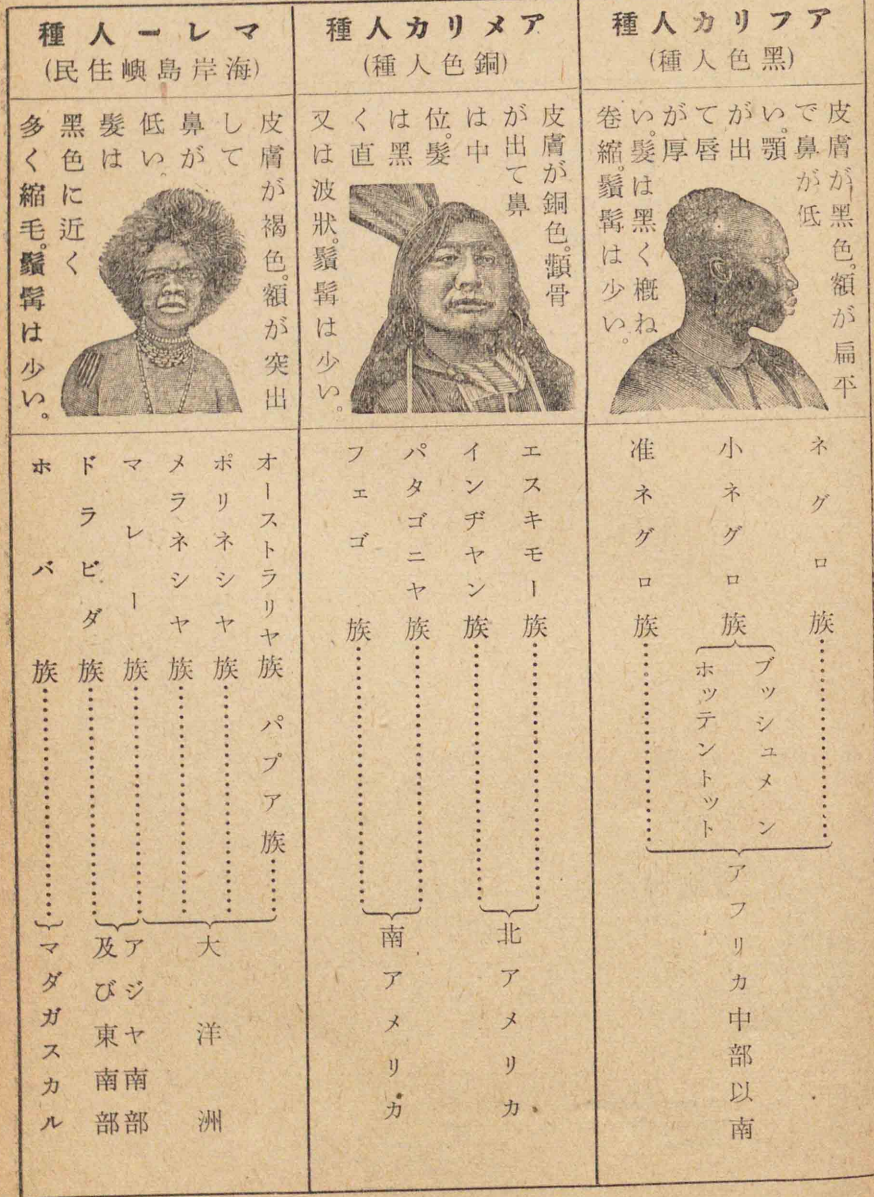 アフリカ人種
(黑色人種)
皮膚が黑色。額が扁平
で鼻が低
い。顎
が出
て唇
が厚
い。髮は黑く槪ね
卷縮。鬚髯は少い。
ネグロ族
小ネグロ族
ブッシュメン
ホッテントット
准ネグロ族
アフリカ中部以南
アメリカ人種
(銅色人種)
皮膚が銅色。顴骨
が出て鼻
は中
位。髮
は黑
く直
又は波狀。鬚髯は少い。
エスキモー族
インヂヤン族
パタゴニヤ族
フェゴ族
北アメリカ
南アメリカ
マレー人種
(海岸島嶼住民)
皮膚が褐色。額が突出
して
鼻が
低い。
髮は
黑色に近く
多く縮毛。鬚髯は少い。
オーストラリヤ族 パプア族
ポリネシヤ族
メラネシヤ族
マレー族
ドラビダ族
ホバ族
大洋洲
アジヤ南部
及び東南部
マダガスカル